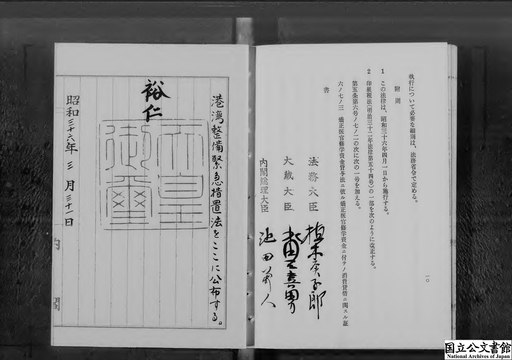 執行について必要な細則は、法務省令で定める。
附則
1 この法律は、昭和三十六年四月一日から施行する。
2 印紙税法(明治三十二年法律第五十四号)の一部を次のように改正する。
第五条第六号ノ七ノ二の次に次の一号を加える。
六ノ七ノ三 矯正医官修学資金貸与法ニ依ル矯正医官修学資金ニ付テノ消費貸借ニ関スル証
書
一〇
法務大臣 植木庚子郎
大蔵大臣 水田三喜男
内閣総理大臣 池田勇人
港湾整備緊急措置法をここに公布する。
裕仁
天皇御璽
昭和三十六年三月三十一日
内閣
国立公文書館
National Archives of Japan